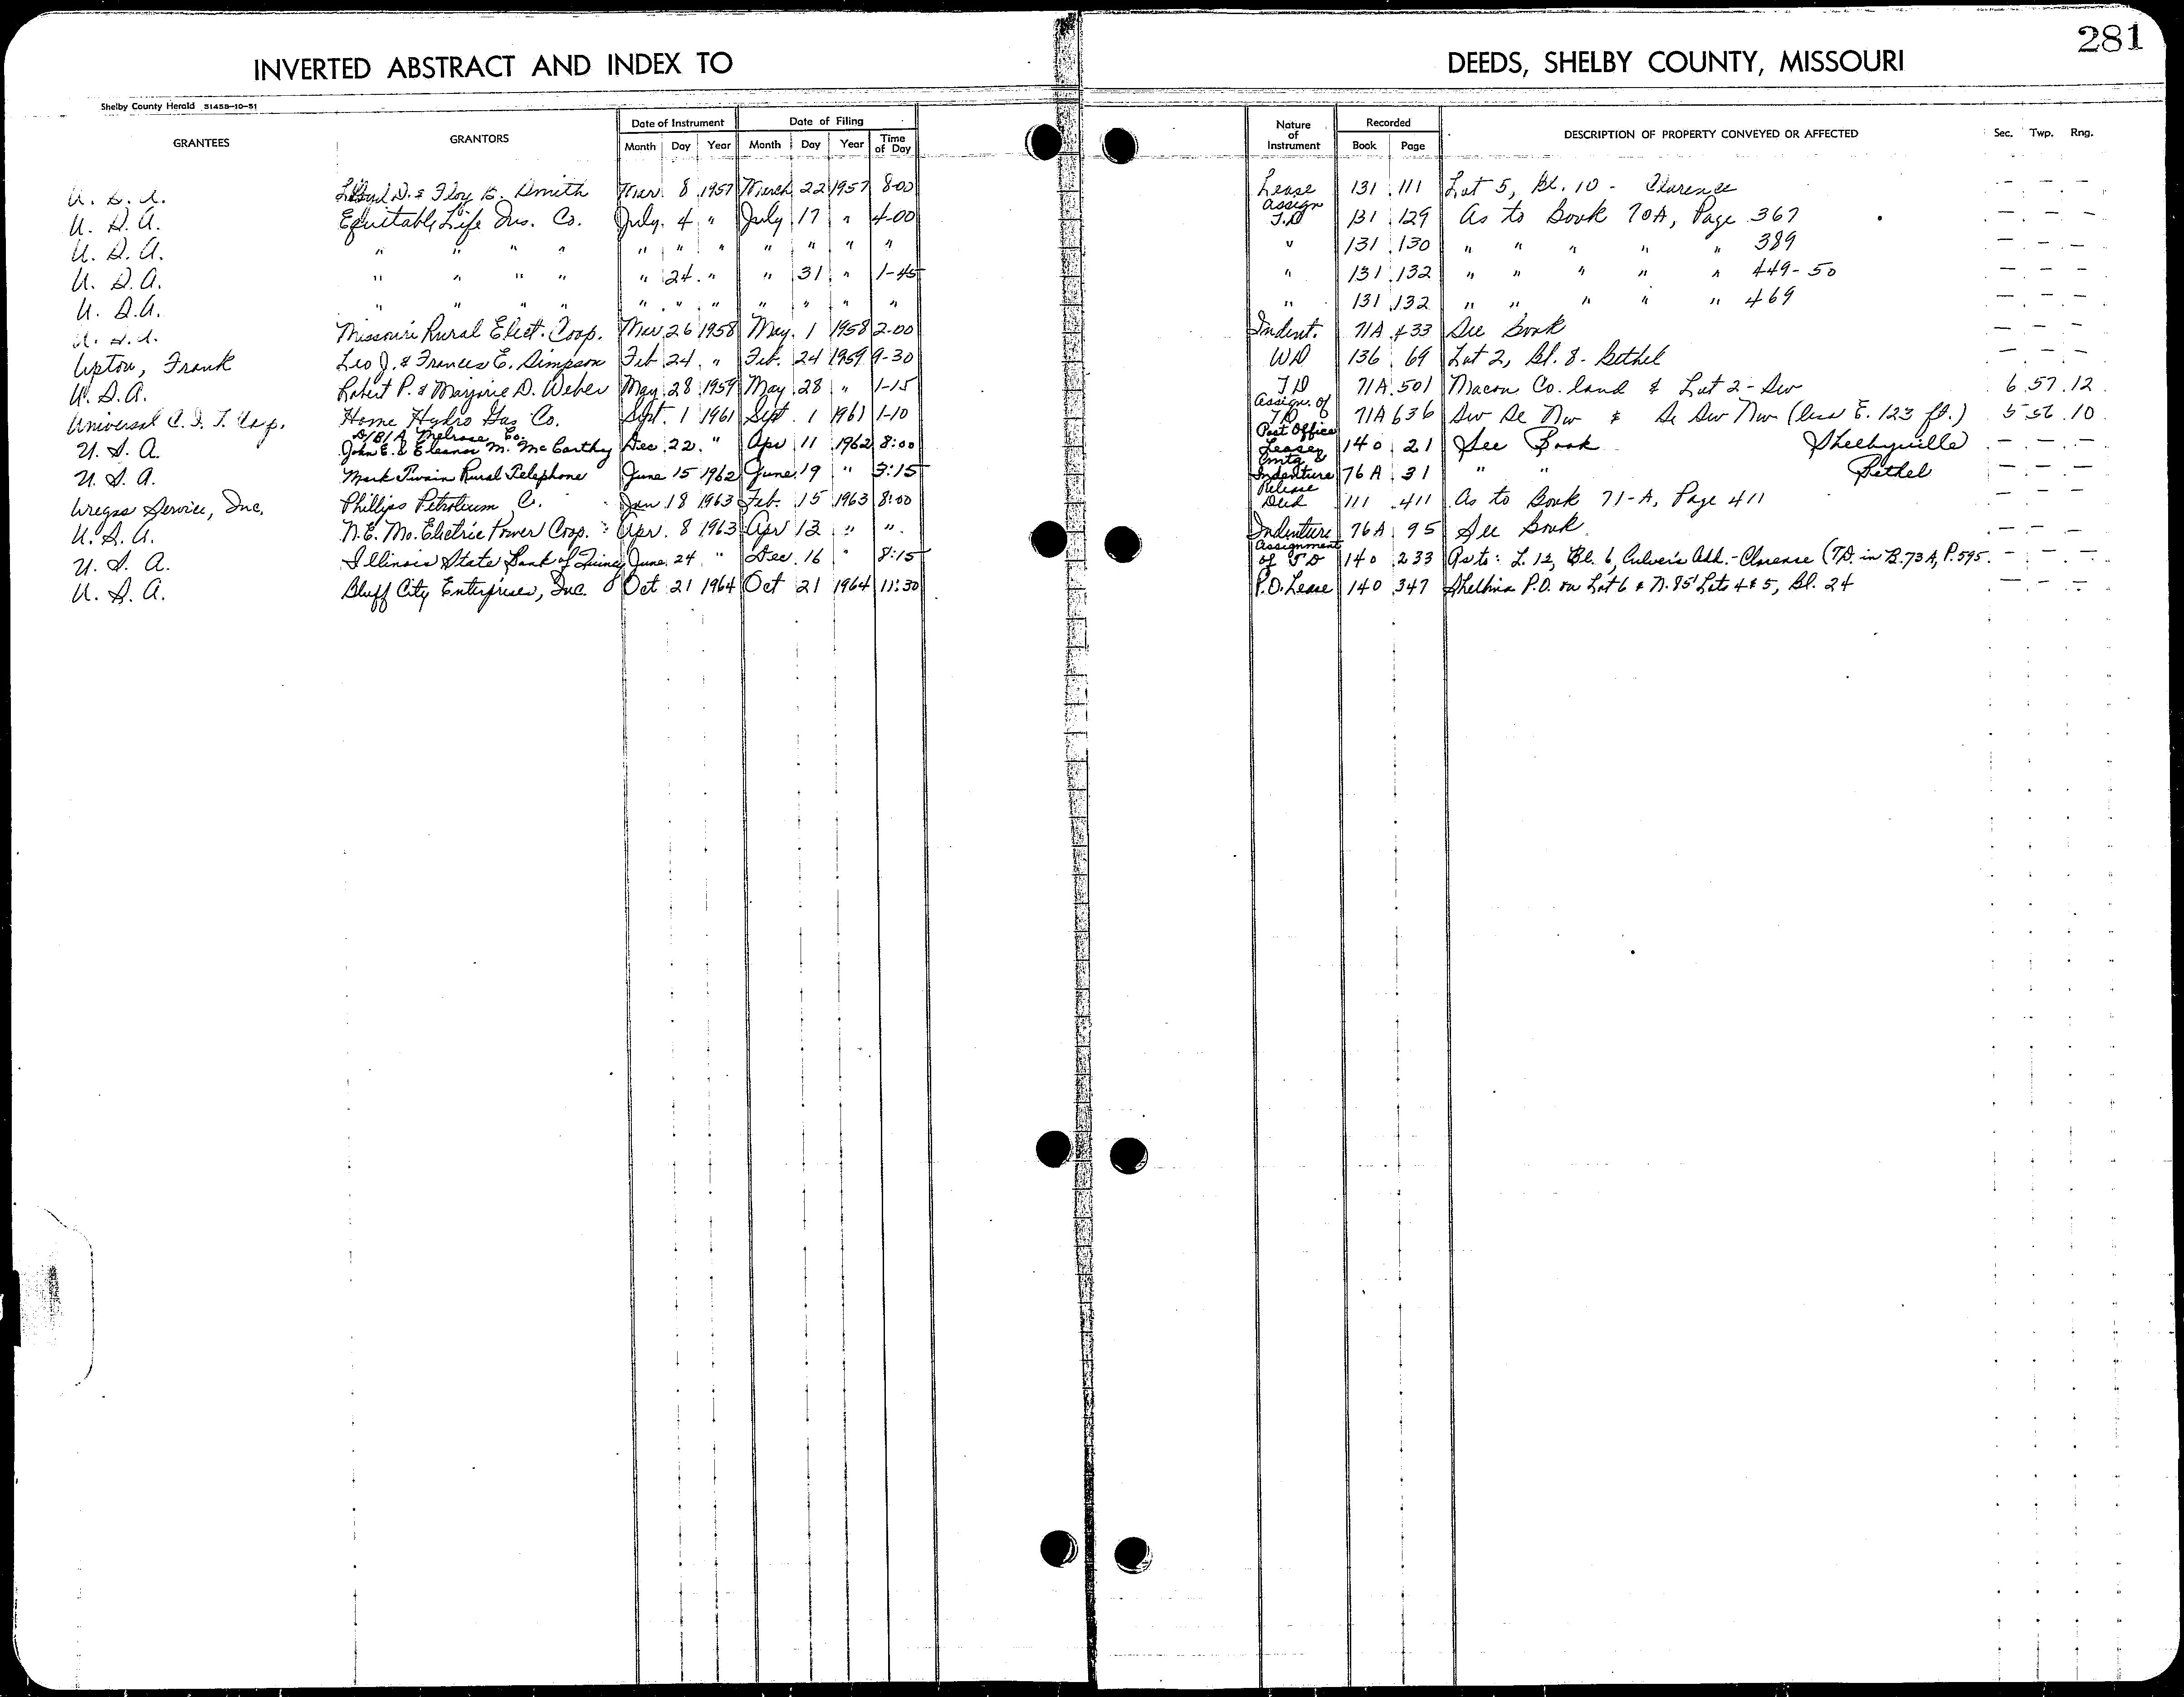 281
INVERTED ABSTRACT AND INDEX TO DEEDS, SHELBY COUNTY, MISSOURI
Shelby County Herald 51458-10-51
GRANTEES GRANTORS Date of Instrument Date of Filing Nature of Instrument Recorded DESCRIPTION OF PROPERTY CONVEYED OR AFFECTED Sec. Twp. Rng.
Month Day Year Month Day Year Time of Day Book Page
U. S. A. Lloyd D. & Floy E. Smith Mar. 8 1957 March 22 1957 8-00 Lease 131 111 Lot 5, Bl. 10 - Clarence - - -
U. S. A. Equitable Life Ins. Co. July 4 " July 17 " 4-00 Assign T.D 131 129 As to Book 70A, Page 367 - - -
U. S. A. " " " " " " " " " " " " 131 130 " " " " " 389 - - -
U. S. A. " " " " " 24 " " 31 " 1-45 " 131 132 " " " " " 449-50 - - -
U. S. A. " " " " " " " " " " " " 131 132 " " " " " 469 - - -
U. S. A. Missouri Rural Elect. Coop. Mar 26 1958 May 1 1958 2-00 Indent. 71A 433 See Book - - -
Upton, Frank Leo J. & Frances E. Simpson Feb 24 " Feb. 24 1959 9-30 WD 136 69 Lot 2, Bl. 8 - Bethel - - -
U. S. A. Robert P. & Marjorie D. Weber May 28 1959 May 28 " 1-15 T.D 71A 501 Macon Co. land & Lot 2 - Sw 6 57 12
Universal C. I. T. Corp. Home Hydro Gas Co. Sept. 1 1961 Sept. 1 1961 1-10 Assign. of T.D. 71A 636 Sw Se Nw & Se Sw Nw (less E. 123 ft.) 5 56 10
D/B/A Melrose Co.
U. S. A. John E. & Eleanor M. McCarthy Dec 22 " Apr 11 1962 8:00 Post Office Lease 140 21 See Book Shelbyville - - -
U. S. A. Mark Twain Rural Telephone June 15 1962 June 19 " 3:15 Indenture 76A 31 " " Bethel - - -
Wregas Service, Inc. Phillips Petroleum C. Jan 18 1963 Feb. 15 1963 8:00 Release Deed 111 411 As to Book 71-A, Page 411 - - -
U. S. A. N.E. Mo. Electric Power Coop. Apr. 8 1963 Apr 12 " " Indenture 76A 95 See Book - - -
U. S. A. Illinois State Bank of Quincy June 24 " Dec. 16 " 8:15 Assignment of T D 140 233 As to: L. 12, Bl. 6, Culver's Add. - Clarence (T.D. in B. 73A, P. 595. - - -
U. S. A. Bluff City Enterprises, Inc. Oct 21 1964 Oct 21 1964 11:30 P.O. Lease 140 347 Shelbina P.O. on Lot 6 & N. 85' Lots 4 & 5, Bl. 24 - - -